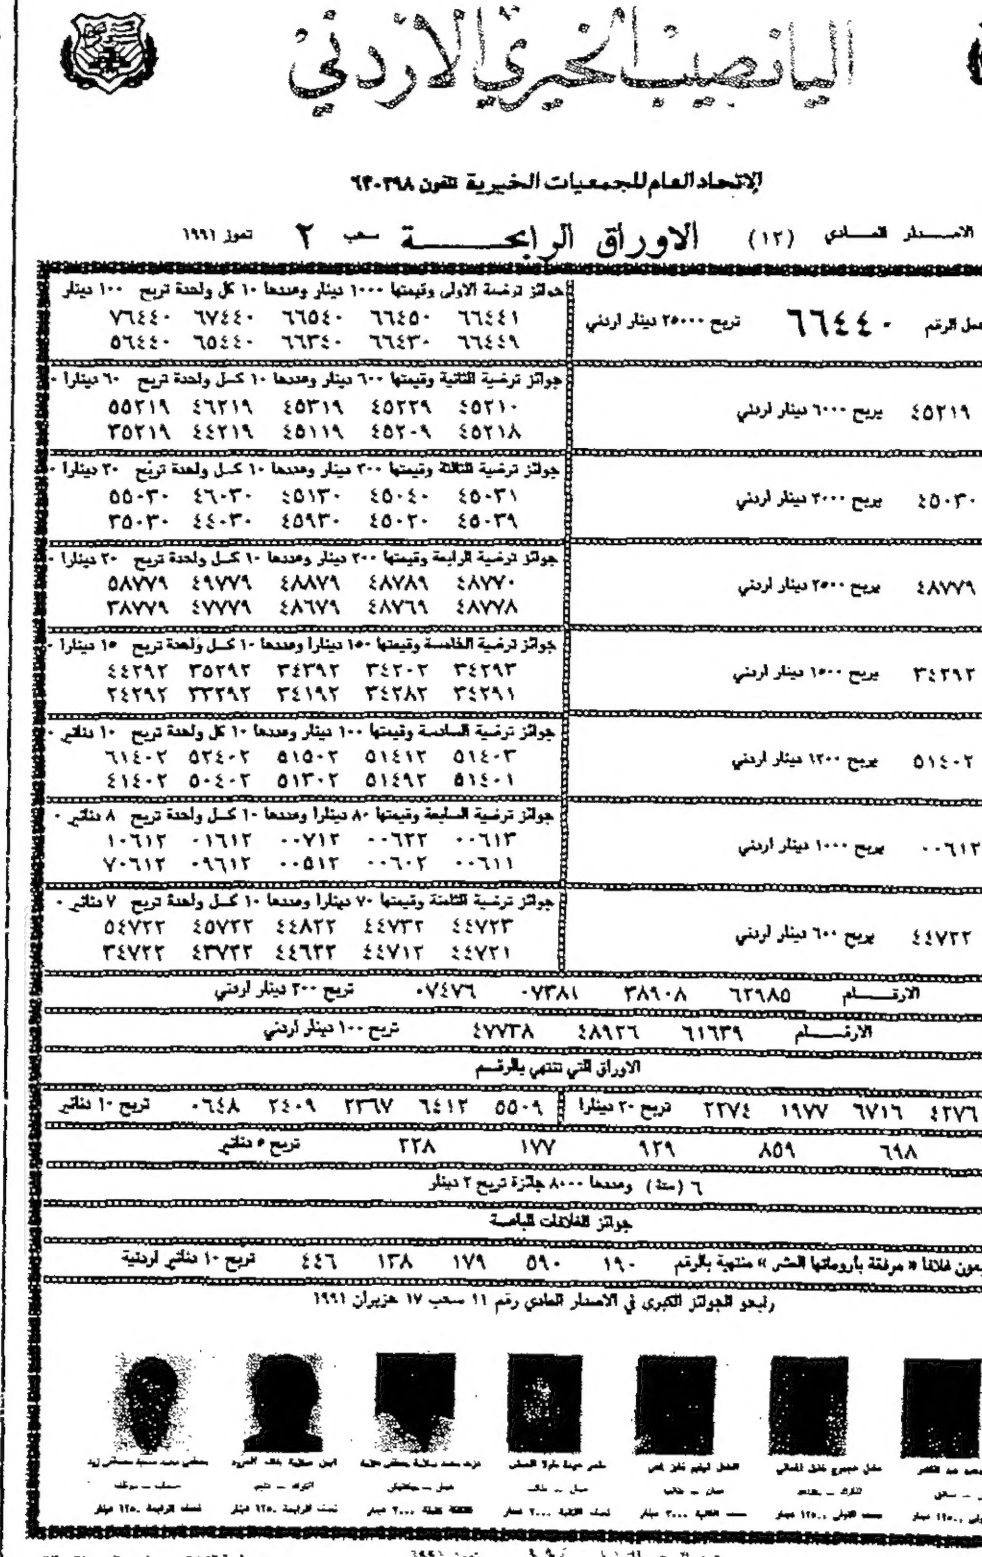 اليانصيب الخيري الأردني
الإتحاد العام للجمعيات الخيرية تلفون ٦٣٠٣٩٨
الاصدار العادي (١٢) الاوراق الرابحة سحب ٢ تموز ١٩٩١
الرقم ٦٦٤٤٠ تربح ٢٥٠٠٠ دينار اردني
جوائز ترضية الاولى وقيمتها ١٠٠٠ دينار وعددها ١٠ كل واحدة تربح ١٠٠ دينار
٦٦٤٤١ ٦٦٤٥٠ ٦٦٥٤٠ ٦٧٤٤٠ ٧٦٤٤٠
٦٦٤٤٩ ٦٦٤٣٠ ٦٦٣٤٠ ٦٥٤٤٠ ٥٦٤٤٠
٤٥٢١٩ يربح ٦٠٠٠ دينار اردني
جوائز ترضية الثانية وقيمتها ٦٠٠ دينار وعددها ١٠ كل واحدة تربح ٦٠ دينارا
٤٥٢١٠ ٤٥٢٢٩ ٤٥٣١٩ ٤٦٢١٩ ٥٥٢١٩
٤٥٢١٨ ٤٥٢٠٩ ٤٥١١٩ ٤٤٢١٩ ٣٥٢١٩
٤٥٠٣٠ يربح ٣٠٠٠ دينار اردني
جوائز ترضية الثالثة وقيمتها ٣٠٠ دينار وعددها ١٠ كل واحدة تربح ٣٠ دينارا
٤٥٠٣١ ٤٥٠٤٠ ٤٥١٣٠ ٤٦٠٣٠ ٥٥٠٣٠
٤٥٠٣٩ ٤٥٠٢٠ ٤٥٩٣٠ ٤٤٠٣٠ ٣٥٠٣٠
٤٨٧٧٩ يربح ٢٥٠٠ دينار اردني
جوائز ترضية الرابعة وقيمتها ٢٠٠ دينار وعددها ١٠ كل واحدة تربح ٢٠ دينارا
٤٨٧٧٠ ٤٨٧٨٩ ٤٨٨٧٩ ٤٩٧٧٩ ٥٨٧٧٩
٤٨٧٧٨ ٤٨٧٦٩ ٤٨٦٧٩ ٤٧٧٧٩ ٣٨٧٧٩
٣٤٢٩٢ يربح ١٥٠٠ دينار اردني
جوائز ترضية الخامسة وقيمتها ١٥٠ دينارا وعددها ١٠ كل واحدة تربح ١٥ دينارا
٣٤٢٩٣ ٣٤٢٠٢ ٣٤٣٩٢ ٣٥٢٩٢ ٤٤٢٩٢
٣٤٢٩١ ٣٤٢٨٢ ٣٤١٩٢ ٣٣٢٩٢ ٢٤٢٩٢
٥١٤٠٢ يربح ١٢٠٠ دينار اردني
جوائز ترضية السادسة وقيمتها ١٠٠ دينار وعددها ١٠ كل واحدة تربح ١٠ دنانير
٥١٤٠٣ ٥١٤١٢ ٥١٥٠٢ ٥٢٤٠٢ ٦١٤٠٢
٥١٤٠١ ٥١٤٩٢ ٥١٣٠٢ ٥٠٤٠٢ ٤١٤٠٢
٠٠٦١٢ يربح ١٠٠٠ دينار اردني
جوائز ترضية السابعة وقيمتها ٨٠ دينارا وعددها ١٠ كل واحدة تربح ٨ دنانير
٠٠٦١٣ ٠٠٦٢٢ ٠٠٧١٢ ٠١٦١٢ ١٠٦١٢
٠٠٦١١ ٠٠٦٠٢ ٠٠٥١٢ ٠٩٦١٢ ٧٠٦١٢
٤٤٧٢٢ يربح ٦٠٠ دينار اردني
جوائز ترضية الثامنة وقيمتها ٧٠ دينارا وعددها ١٠ كل واحدة تربح ٧ دنانير
٤٤٧٢٣ ٤٤٧٣٢ ٤٤٨٢٢ ٤٥٧٢٢ ٥٤٧٢٢
٤٤٧٢١ ٤٤٧١٢ ٤٤٦٢٢ ٤٣٧٢٢ ٣٤٧٢٢
الارقام ٦٢٩٨٥ ٣٨٩٠٨ ٠٧٣٨١ ٠٧٤٧٦ تربح ٢٠٠ دينار اردني
الارقام ٦١٦٣٩ ٤٨٩٢٦ ٤٧٧٣٨ تربح ١٠٠ دينار اردني
الاوراق التي تنتهي بالرقم
٤٢٧٦ ٦٧١٦ ١٩٧٧ ٢٢٧٤ تربح ٢٠ دينارا ٥٥٠٩ ٦٤١٢ ٢٣٦٧ ٢٤٠٩ ٠٦٤٨ تربح ١٠ دنانير
٦٩٨ ٨٥٩ ٩٢٩ ١٧٧ ٢٢٨ تربح ٥ دنانير
٦ (ستة) وعددها ٨٠٠٠ جائزة تربح ٢ دينار
جوائز الغلافات المباعة
غلافا « مرفقة بأرومتها العشر » منتهية بالرقم ١٩٠ ٥٩٠ ١٧٩ ١٣٨ ٤٤٦ تربح ١٠ دنانير اردنية
رابحو الجوائز الكبرى في الاصدار العادي رقم ١١ سحب ١٧ حزيران ١٩٩١